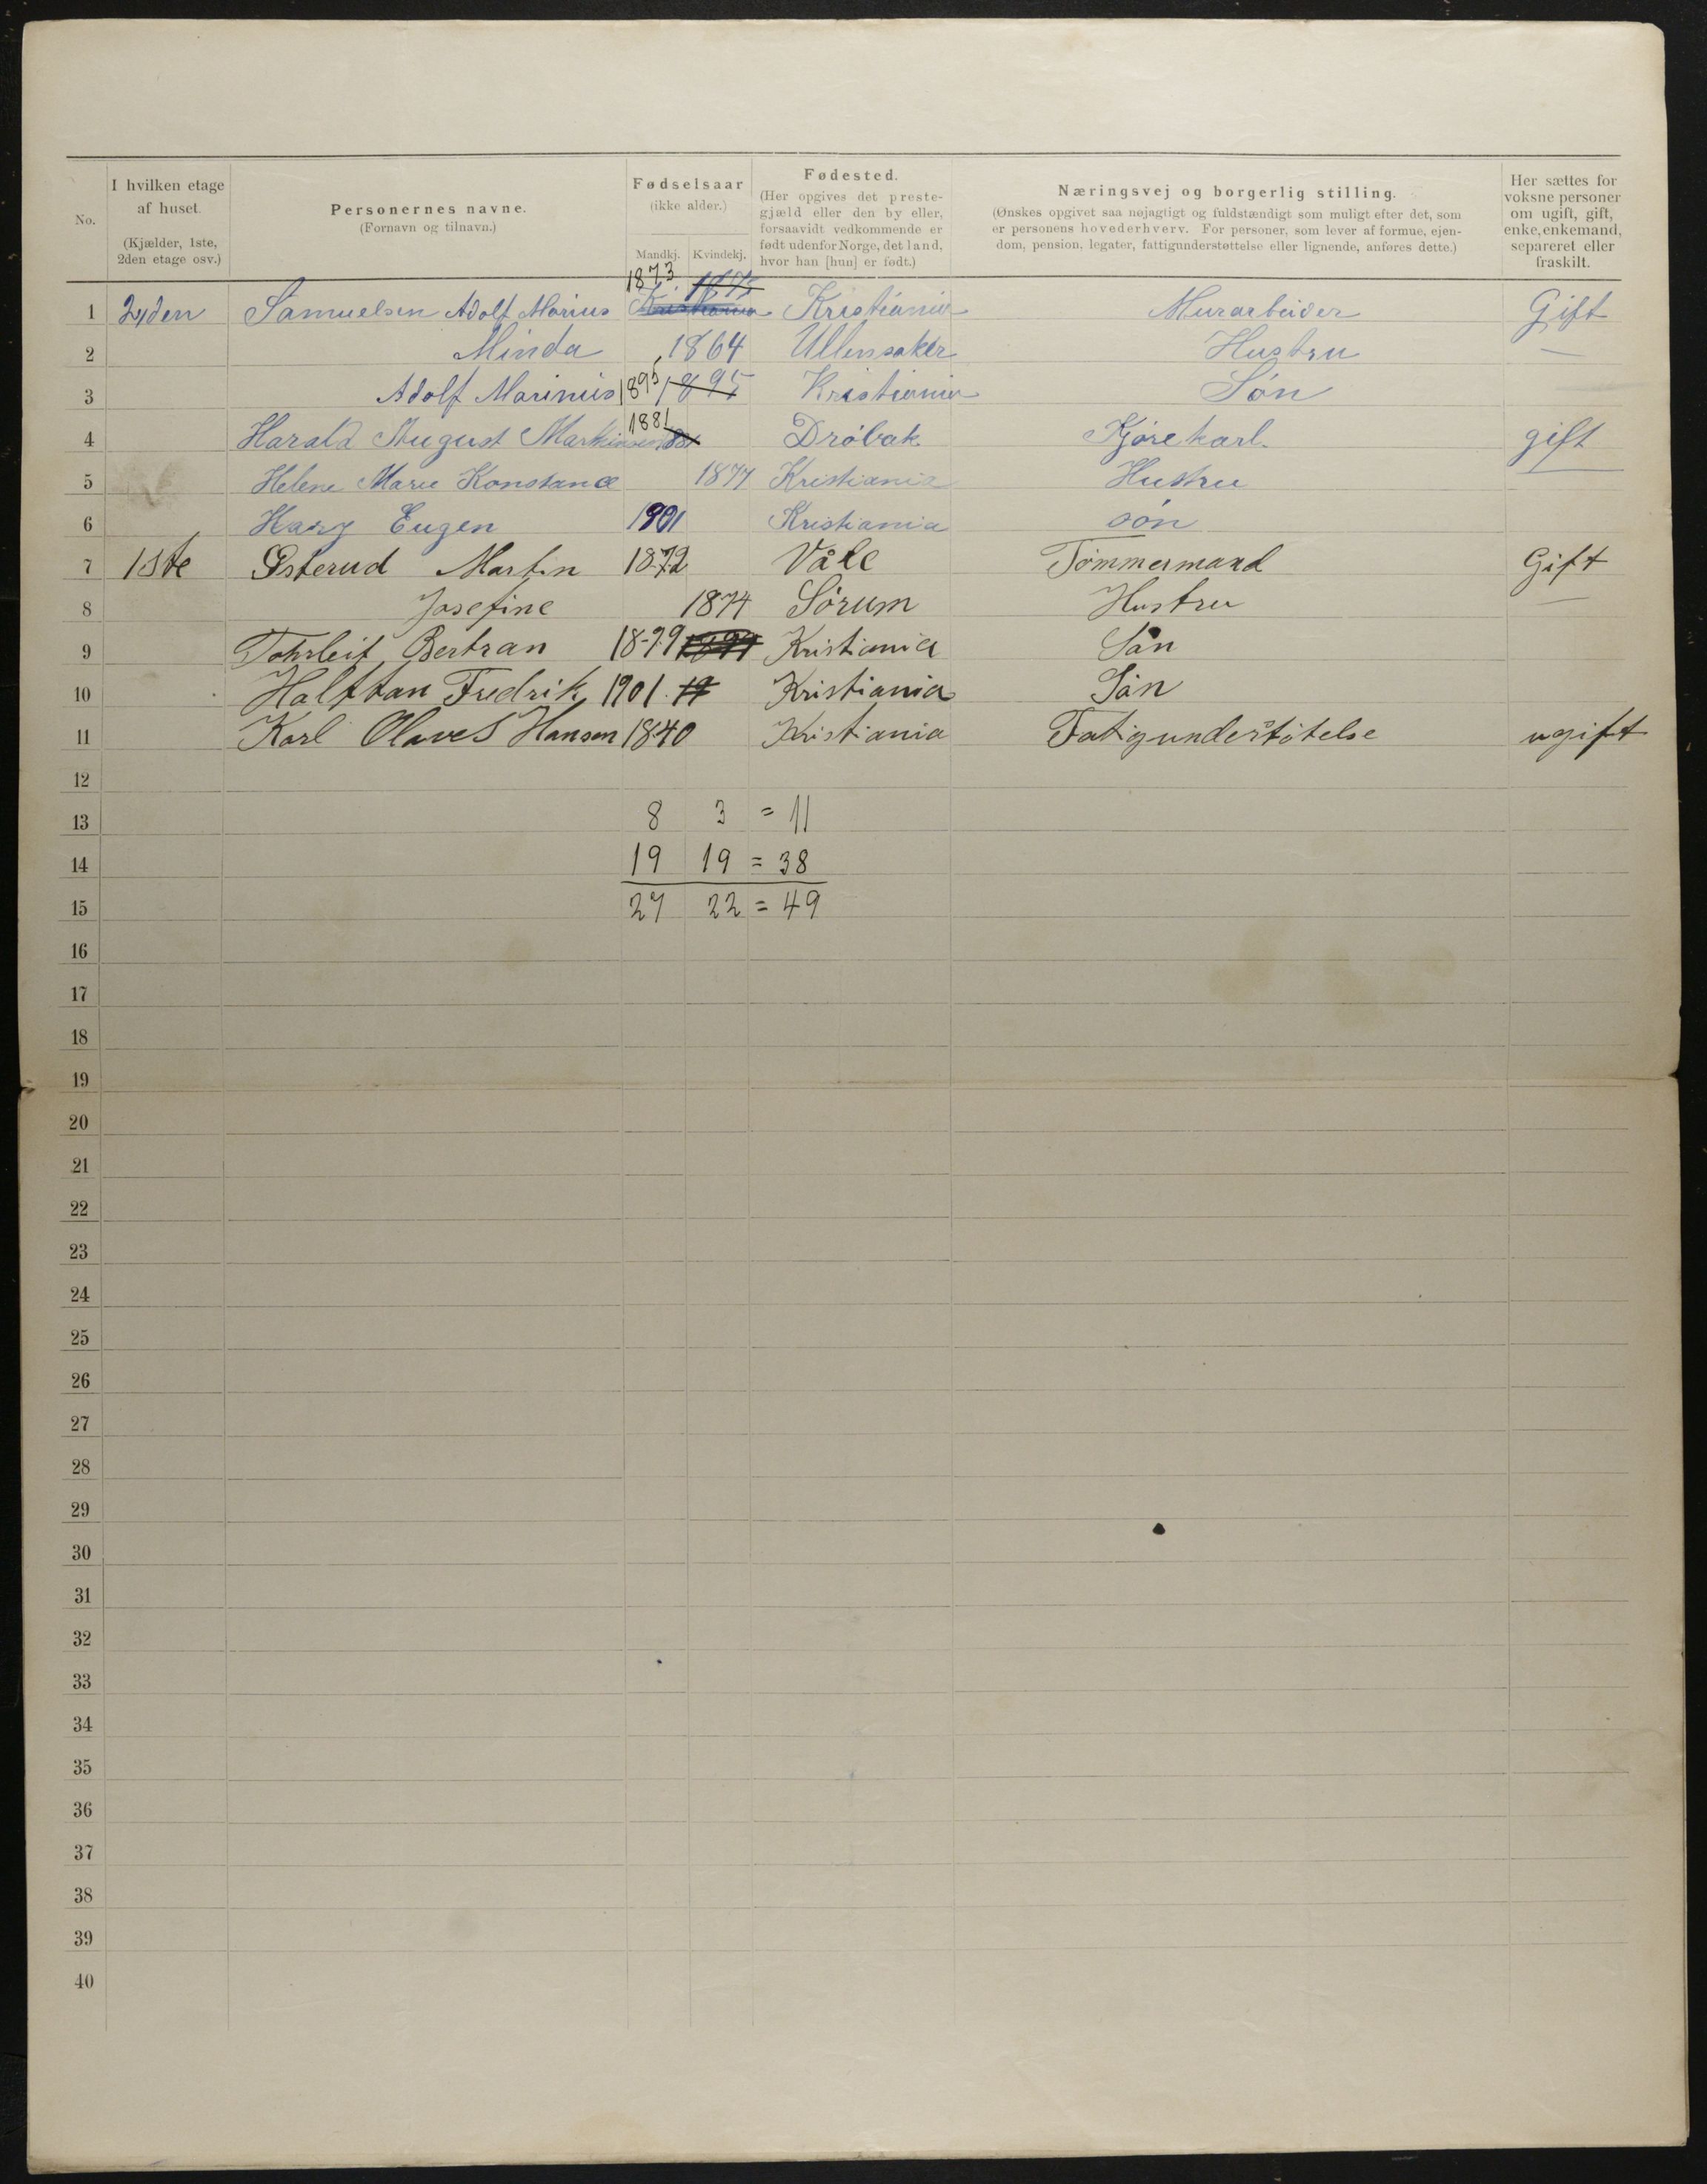 No.
I hvilken etage af huset. (Kjælder, 1ste, 2den etage osv.)
Personernes navne. (Fornavn og tilnavn.)
Fødselsaar (ikke alder.) Mandkj. Kvindekj.
Fødested. (Her opgives det prestegjæld eller den by eller, forsaavidt vedkommende er født udenfor Norge, det land, hvor han [hun] er født.)
Næringsvej og borgerlig stilling. (Ønskes opgivet saa nøjagtigt og fuldstændigt som muligt efter det, som er personens hovederhverv. For personer, som lever af formue, ejendom, pension, legater, fattigunderstøttelse eller lignende, anføres dette.)
Her sættes for voksne personer om ugift, gift, enke, enkemand, separeret eller fraskilt.
1 2den Samuelsen Adolf Marius 1873 Kristiania Kristiania Murarbeider Gift
2 Minda 1864 Ullensaker Hustru —
3 Adolf Marinius 1895 1895 Kristiania Søn
4 Harald August Martinsen 1881 Drøbak Kjørekarl. gift
5 Helene Marie Konstance 1877 Kristiania Hustru
6 Harry Eugen 1901 Kristiania søn
7 1ste Østerud Martin 1872 Våle Tømmermand Gift
8 Josefine 1874 Sørum Hustru —
9 Tohrleif Bertran 1899 Kristiania Søn
10 Halftan Fredrik 1901 Kristiania Søn
11 Karl Olaves Hansen 1840 Kristiania Fatigunderstøtelse ugift
12
13 8 3 = 11
14 19 19 = 38
15 27 22 = 49
16
17
18
19
20
21
22
23
24
25
26
27
28
29
30
31
32
33
34
35
36
37
38
39
40